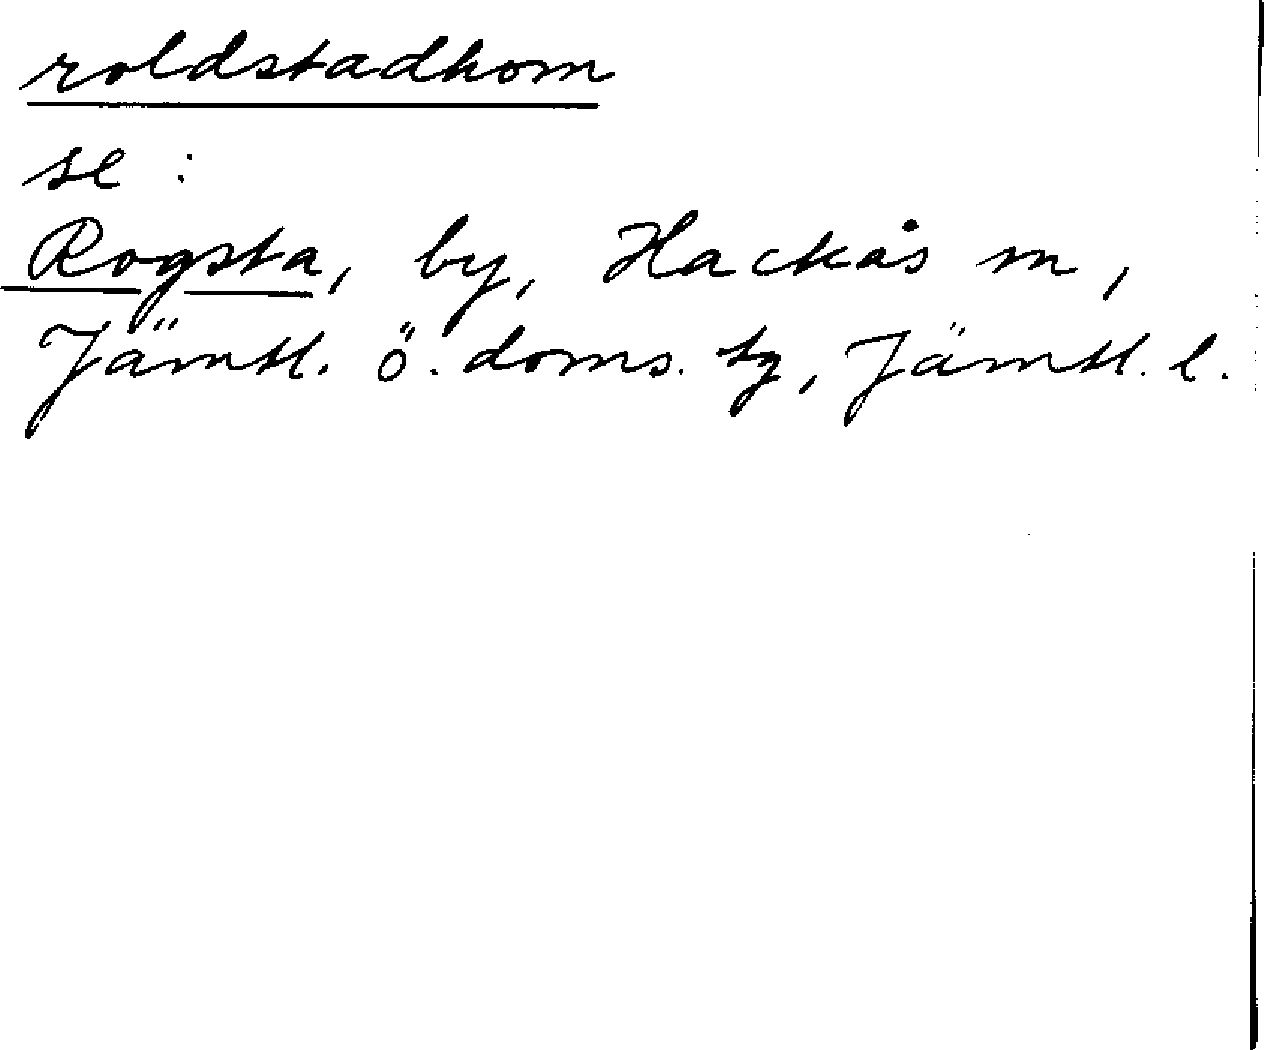 roldstadhom
se :
Rogsta, by, Hackås sn,
Jämtl. ö. doms. tg, Jämtl. l.